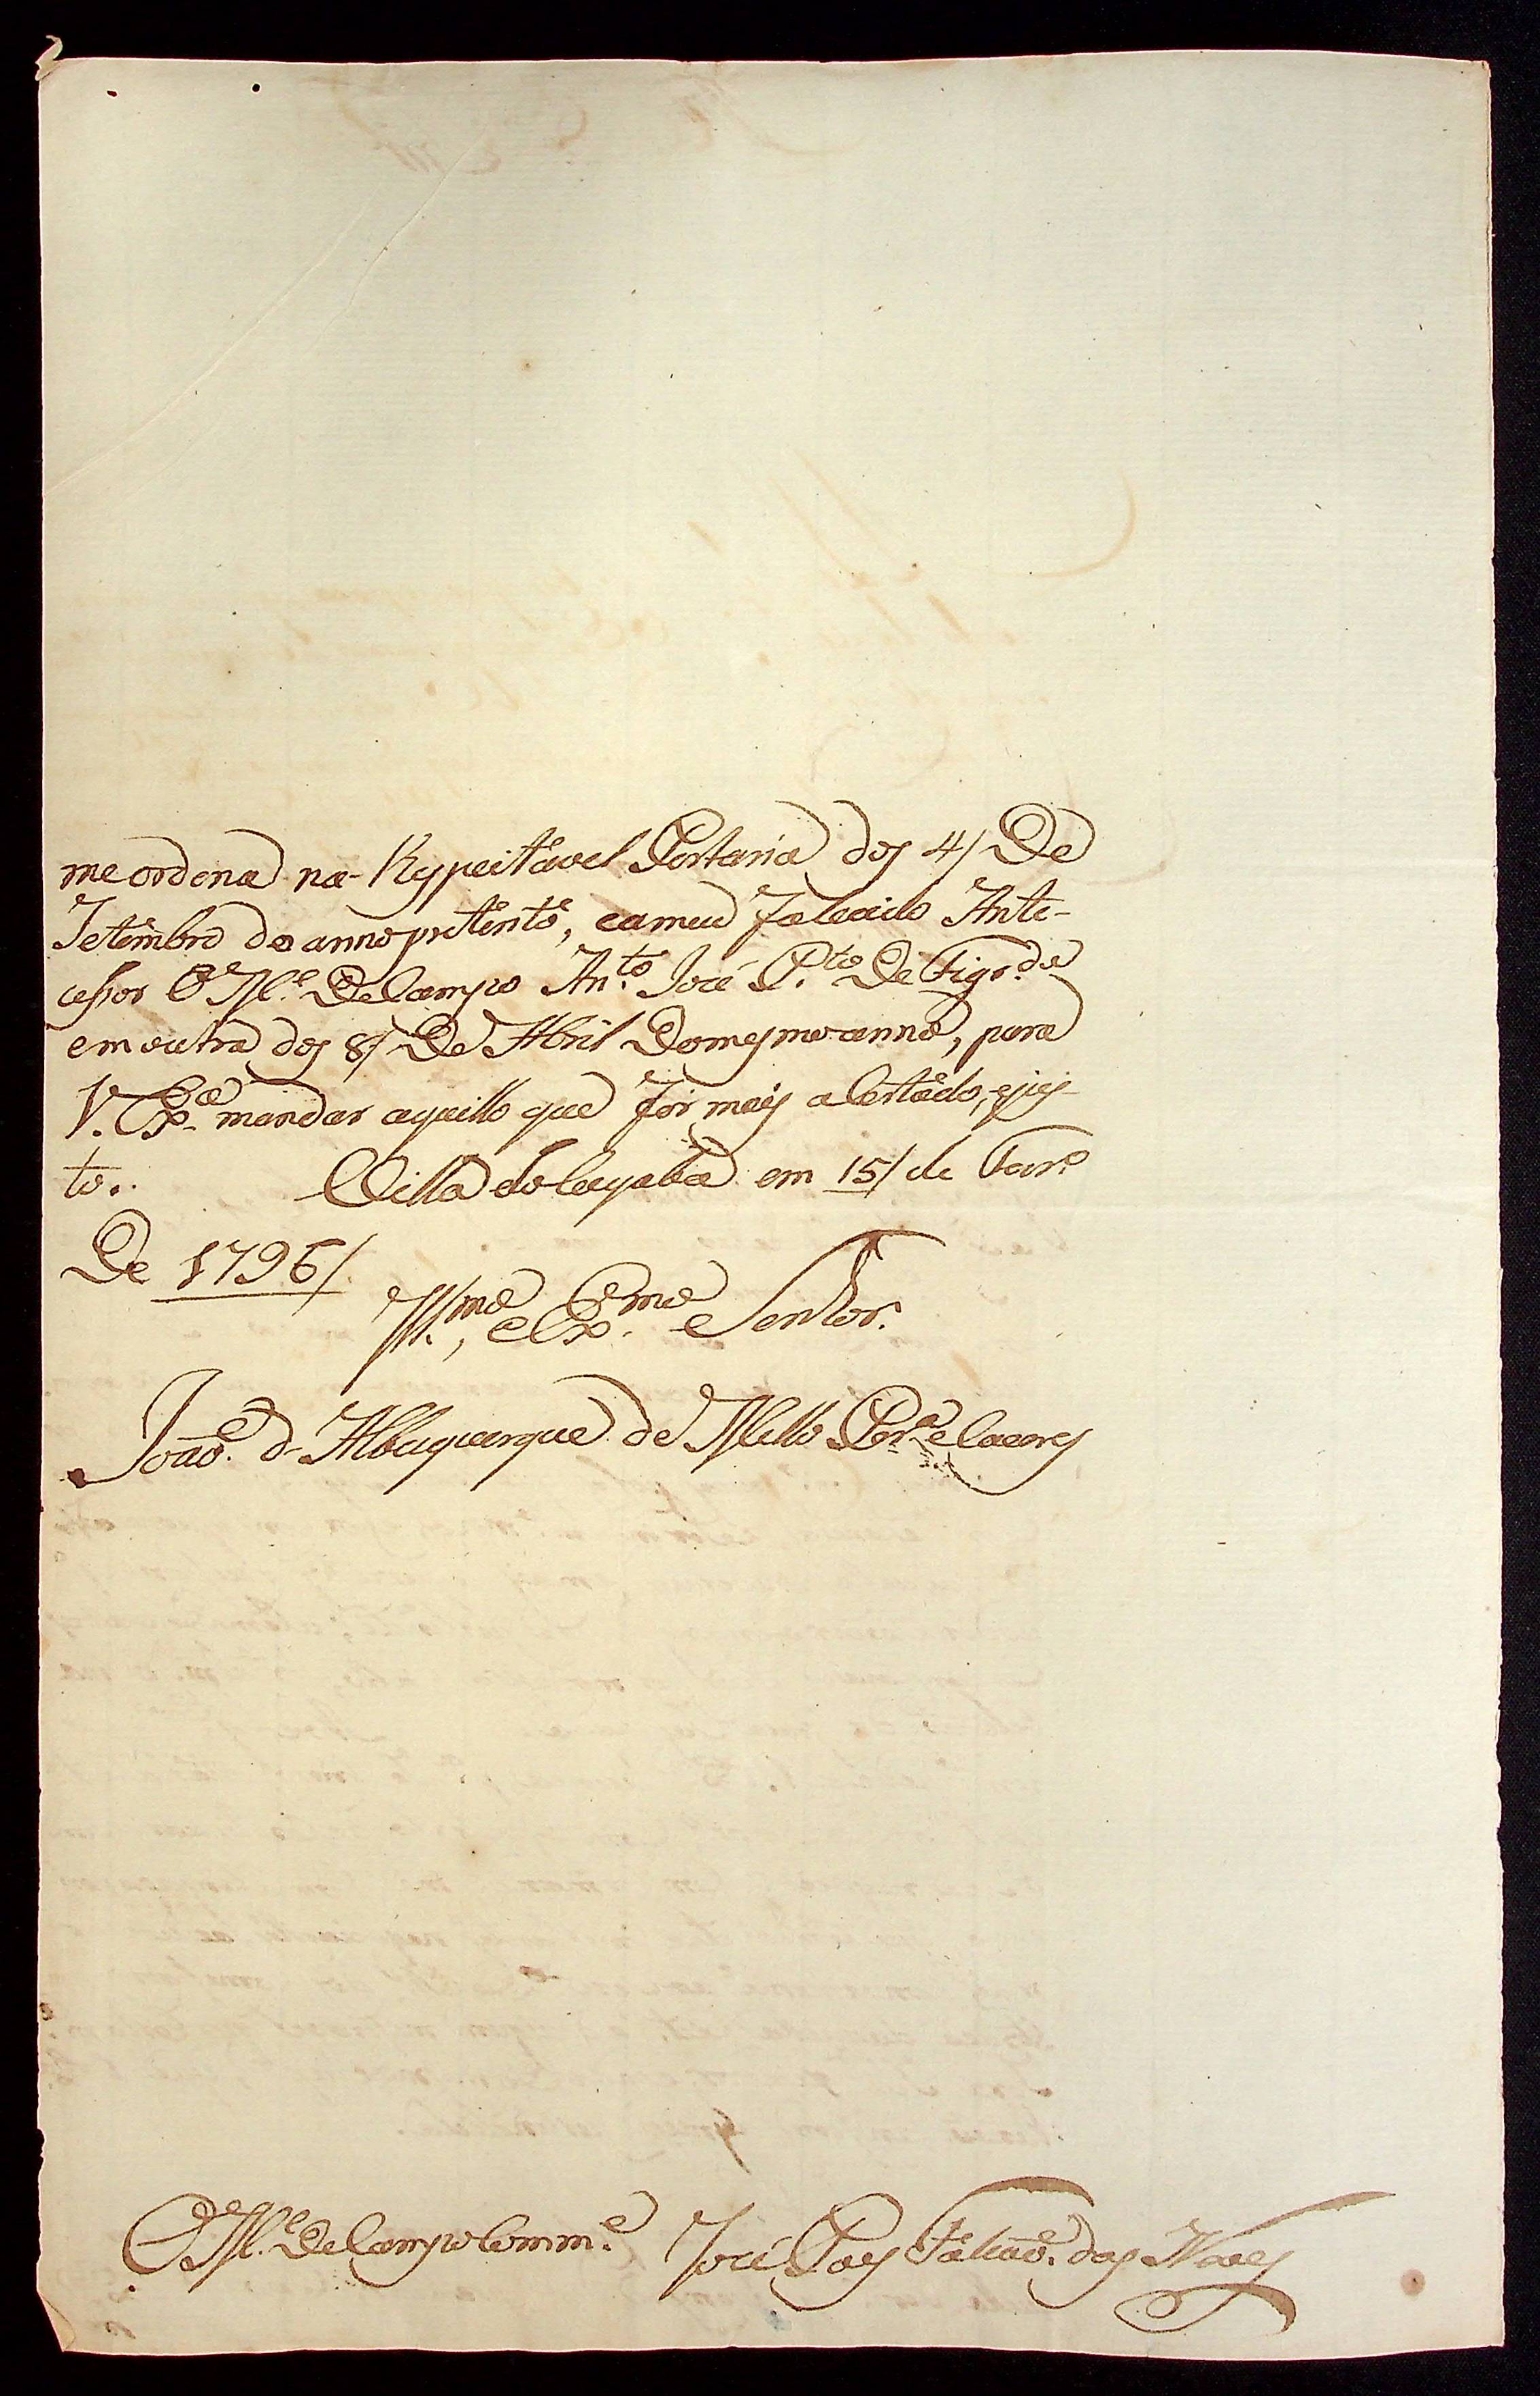 me ordena na Respeitavel Portaria dos 4/ De
Setembro do anno pretento, eameu falecido Ante-
cessor O M.e De Campo An.to José P.to De Figr.do
em outra dos 8/ De Abril Domesmo anno, para
V. Ex.a mandar aquillo que for mais acertado, ejus-
to. Villa do Cuyabá em 15/ de Janr.o
De 1796/
Ill.mo, e Ex.mo Senhor.
João d' Albuquerque de Mello Per.a eCaceres
O M.e De Campo Comm.e José Paes Falcaõ das Neves